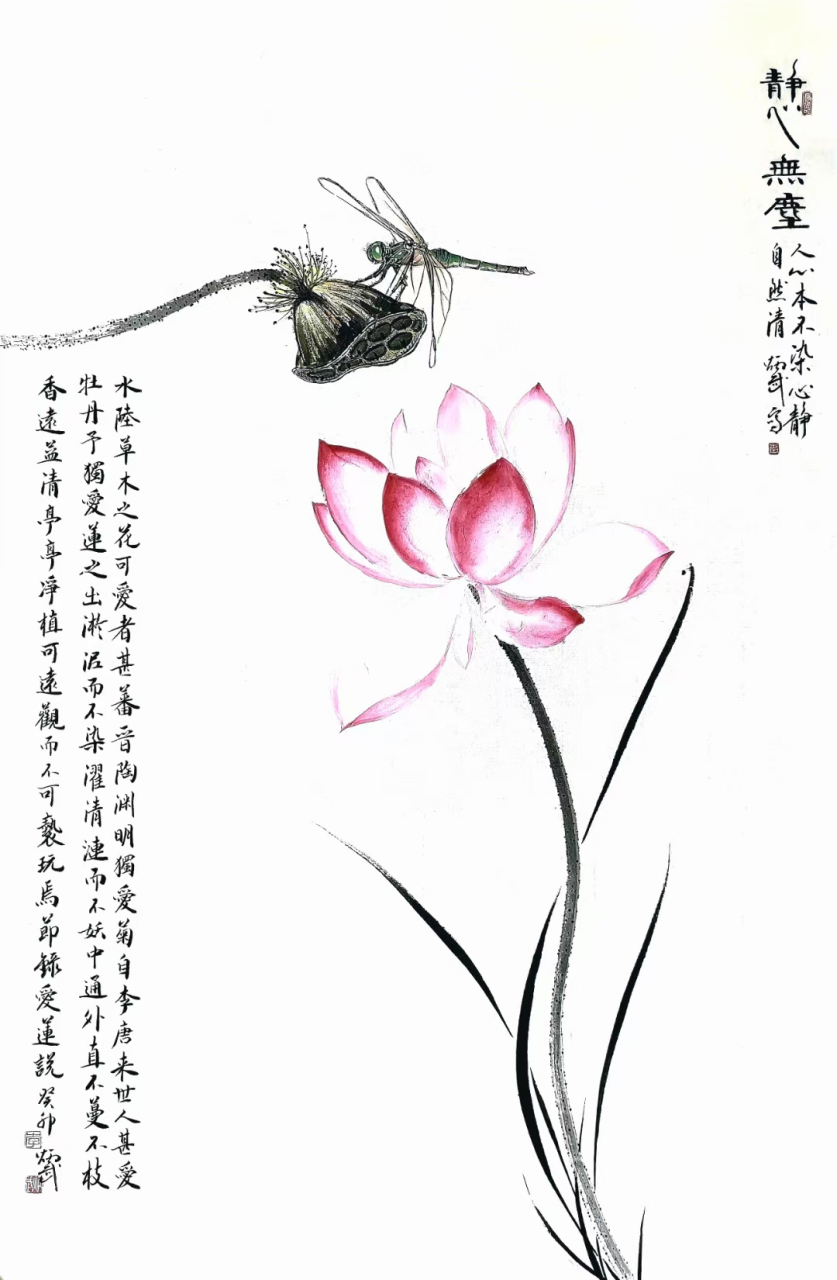 靜心無塵
人心本不染心靜
自然清
水陸草木之花可愛者甚蕃晋陶渊明獨愛菊自李唐来世人甚愛
牡丹予獨愛蓮之出淤泥而不染濯清漣而不妖中通外直不蔓不枝
香遠益清亭亭淨植可遠觀而不可褻玩焉節錄愛蓮説癸卯